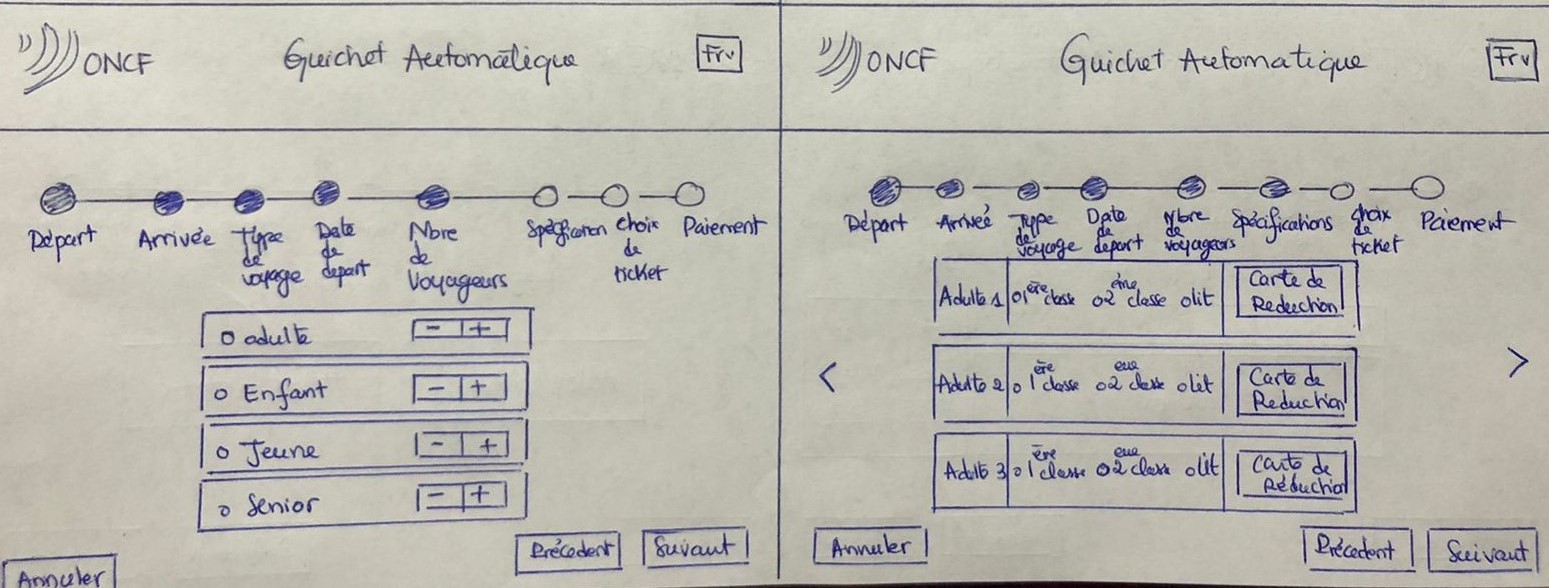 ONCF Guichet Automatique Frv
Départ Arrivée Type de voyage Date de depart Nbre de Voyageurs Spécification Choix de ticket Paiement
o adulte - +
o Enfant - +
o Jeune - +
o Senior - +
Annuler Précedent Suivant
ONCF Guichet Automatique Frv
Départ Arrivée Type de voyage Date de départ Nbre de voyageurs Spécifications choix de ticket Paiement
Adulte 1 o 1ère classe o 2ème classe o lit Carte de Reduction
< Adulte 2 o 1ère classe o 2eme classe o lit Carte de Reduction >
Adulte 3 o 1ère classe o 2eme classe o lit Carte de Réduction
Annuler Précedent Suivant